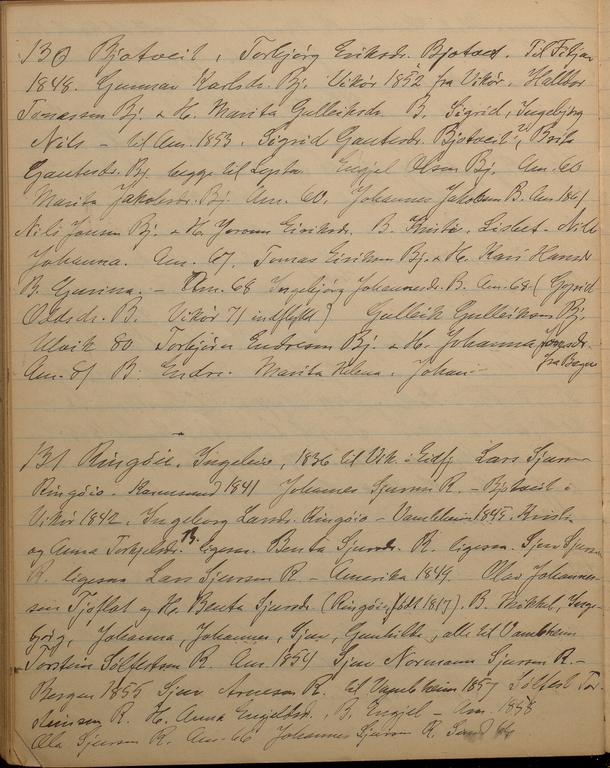 130 Bjotveit, Torbjörg Eriksdr. Bjotveit. Til
1848. Gunnar Karlsdr. Bj. Vikör 1852 fra Vikör. Halldor
Tomassen Bj. & H. Marita Gulleiksdr. B. Sigrid, Ingebjörg
Nils - til Am. 1853. Sigrid Gautesdr. Bjotveit, Brita
Gautesdr. Bj. begge til Lysta. Engjel Olsen Bj. Am. 60
Marita Jakobsdr. Bj. Am. 60. Johannes Jakobsen B. Am 1861
Nils Jonsen Bj. & H. Eiriksdr. B. Krista, Lisbet - Nils
Johanna. Am. 67. Tomas Eiriksen Bj. & H. Kari Hansdr
B. Gurina. - Am. 68 Ingebjörg Johannesdr. B. Am. 68. (
Oddsdr. B. Vikör 71 indflytt) Gulleik Gulleiksen Bj.
Ulvik 80 Torbjörn Endresen Bj. & H. Johanna Jonsdr.
Am. 81 B. Endre. Marita Helena. Johan - fra Bergen
131 Ringöio. Ingeleiv, 1836 til Vik i Eidfj. Lars Sjursen
Ringöio. 1841 Johannes Sjursen R. - Bjotveit i
Vikör 1842. Ingeborg Larsdr. Ringöio - Vambheim 1845. Kristi
og Anna Torkjelsdr. R. ligesaa. Benta Sjursdr. R. ligesaa. Sjur Sjursen
R. ligesaa Lars Sjursen R. - Amerika 1849. Olav Johannes-
sen Tjoflat og H. Benta Sjursdr. (Ringöio född 1817). B. Mikkel, Inge-
björg, Johanna, Johannes, Sjur, Gunhilde, alle til Vambheim
Torstein Solfestsen R. Am. 1854 Sjur Normann Sjursen R. -
Bergen 1855 Sjur Arnesen R. til Vambheim 1857 Solfest Tor-
steinsen R. H. Anna Engjelsdr., B. Engjel - Am. 1858
Ola Sjursen R. Am. 66 Johannes Sjursen R.